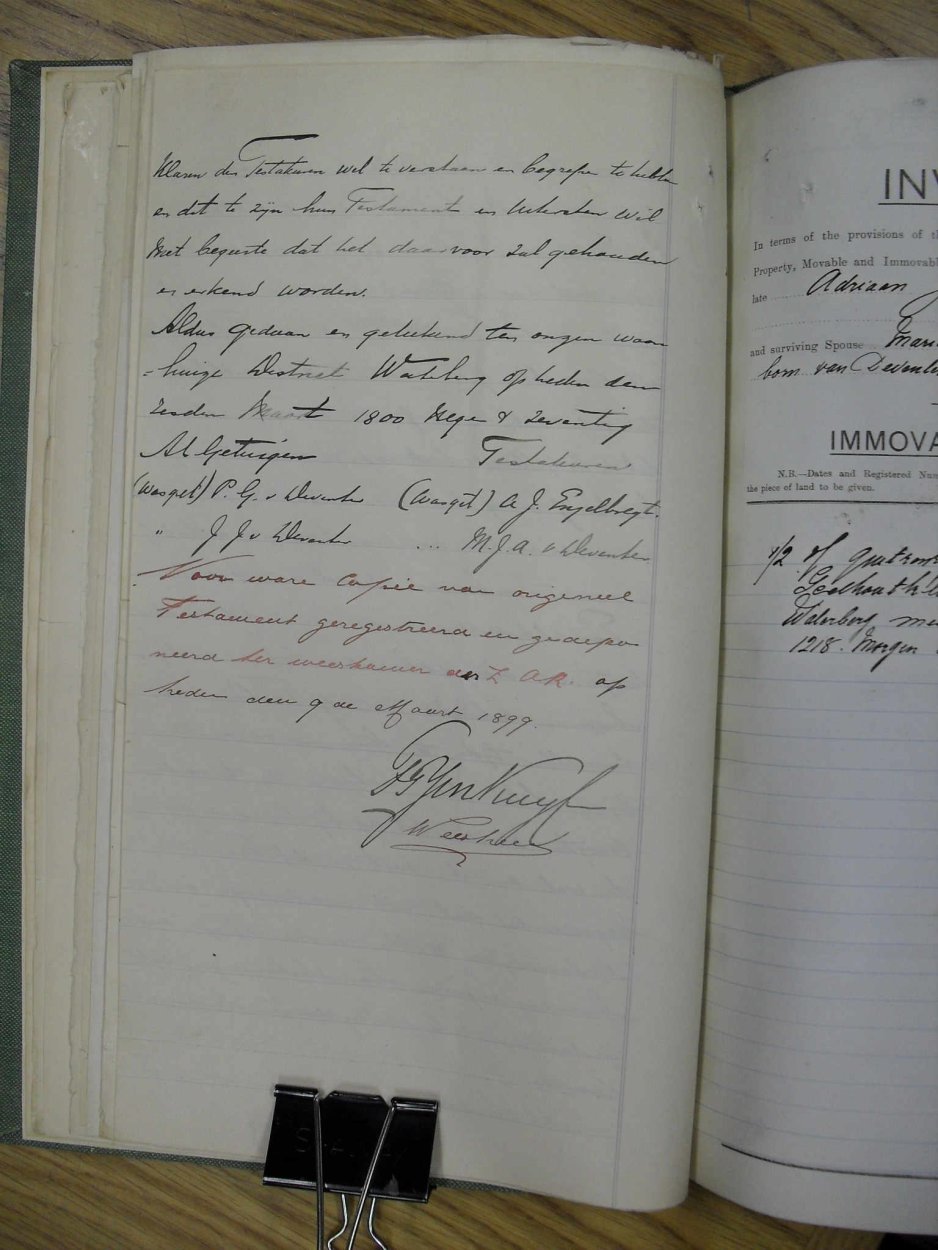 klaren des Testateuren wel te verstaen en begrepen te hebben
en dit te zijn hun Testament en Uitersten Wil
Met begeerte dat het daarvoor zal gehouden
en erkend worden.
Aldus gedaan en geteekend ten onzen woon
-huize District Waterberg op heden den
zesden Maart 1800 Nege & Zeventig
Als Getuigen Testateuren
(was get) P. G. v Deventer (was get) A J. Engelbregt.
" J J v Deventer ... M. J. A. v Deventer
Voor ware Copie van origeneel
Testament geregistreerd en gedepo
neerd ter weeskamer der Z. A. R. op
heden den 9 de Maart 1899.
Weesheer
INV
In terms of the provisions of th
Property, Movable and Immovabl
late Adriaan J
and surviving Spouse Mari
born van Deventer
IMMOVA
N.B.—Dates and Registered Num
the piece of land to be given.
1/2 of
Waterberg
1218. Morgen